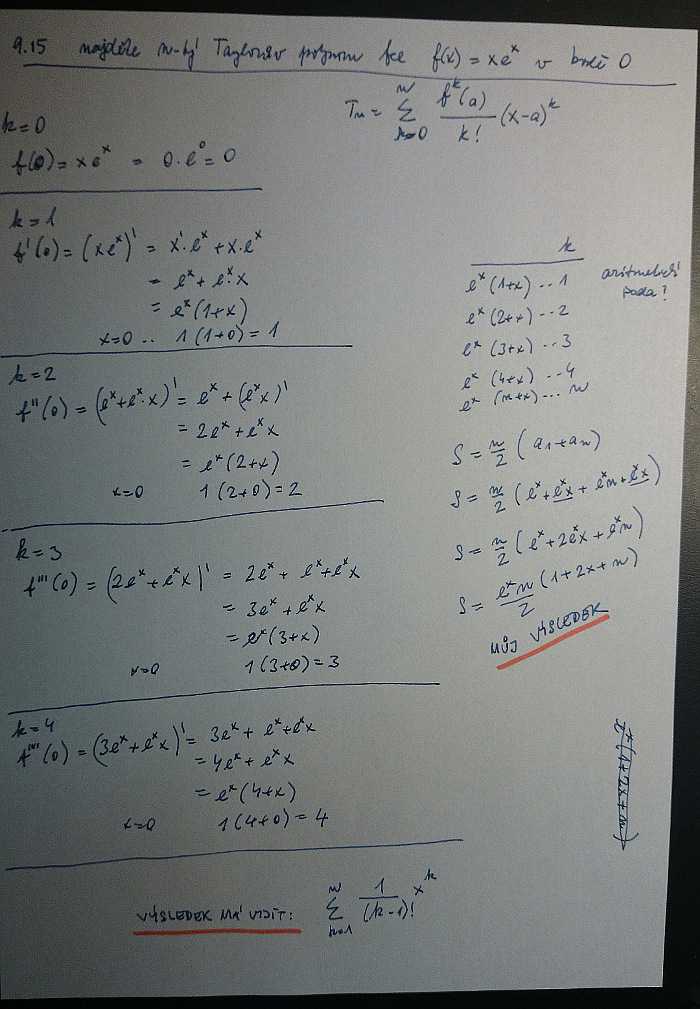 9.15 najděte n-tý Taylorův polynom fce f(x) = xe^x v bodě 0
T_n = Σ_{k=0}^{n} f^k(a)/k! (x-a)^k
k=0
f(0) = xe^x = 0·e^0 = 0
k=1
f'(0) = (xe^x)' = x'·e^x + x·e^x
= e^x + e^x·x
= e^x(1+x)
x=0 .. 1(1+0) = 1
k=2
f''(0) = (e^x+e^x·x)' = e^x + (e^x x)'
= 2e^x + e^x x
= e^x(2+x)
x=0 1(2+0) = 2
k=3
f'''(0) = (2e^x + e^x x)' = 2e^x + e^x+e^x x
= 3e^x + e^x x
= e^x(3+x)
x=0 1(3+0) = 3
k=4
f''''(0) = (3e^x + e^x x)' = 3e^x + e^x+e^x x
= 4e^x + e^x x
= e^x(4+x)
x=0 1(4+0) = 4
k
e^x(1+x) .. 1
e^x(2+x) .. 2
e^x(3+x) .. 3
e^x(4+x) .. 4
e^x(n+x) ... n
aritmetická
řada?
S = n/2 (a_1+a_n)
S = n/2 (e^x+e^x x + e^x n+e^x x)
S = n/2 (e^x+2e^x x+e^x n)
S = e^x n/2 (1+2x+n)
MŮJ VÝSLEDEK
VÝSLEDEK MÁ VYJÍT: Σ_{k=1}^{n} 1/(k-1)! x^k